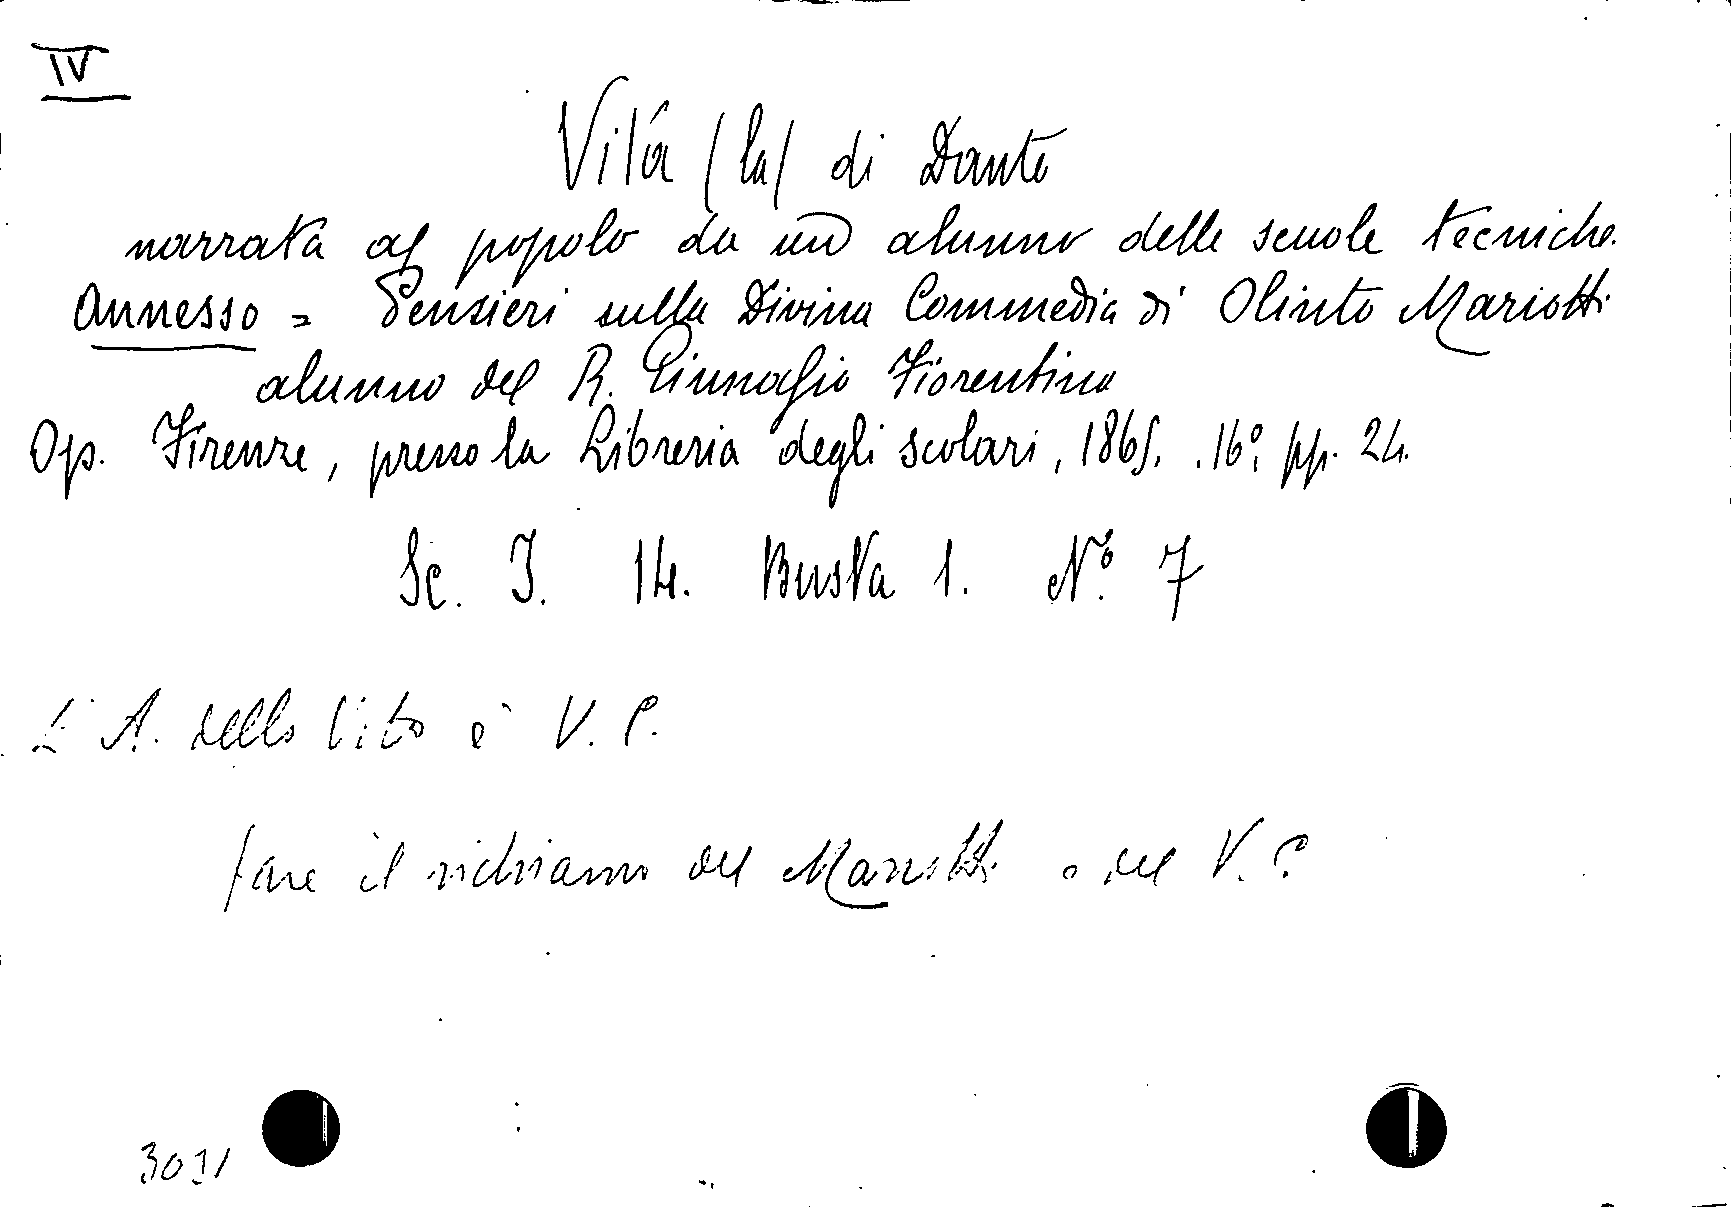 IV
Vita (la) di Dante
narrata al popolo da un alunno delle scuole tecniche.
Annesso = Pensieri sulla Divina Commedia di Olinto Mariotti
alunno del R. Ginnasio Fiorentino
Op. Firenze, presso la Libreria degli scolari, 1865. .16º. pp. 24.
Sc. I. 14. Busta 1. Nº. 7
L'A. della Vita è V. P.
fare il richiamo del Mariotti e del V. P.
3031